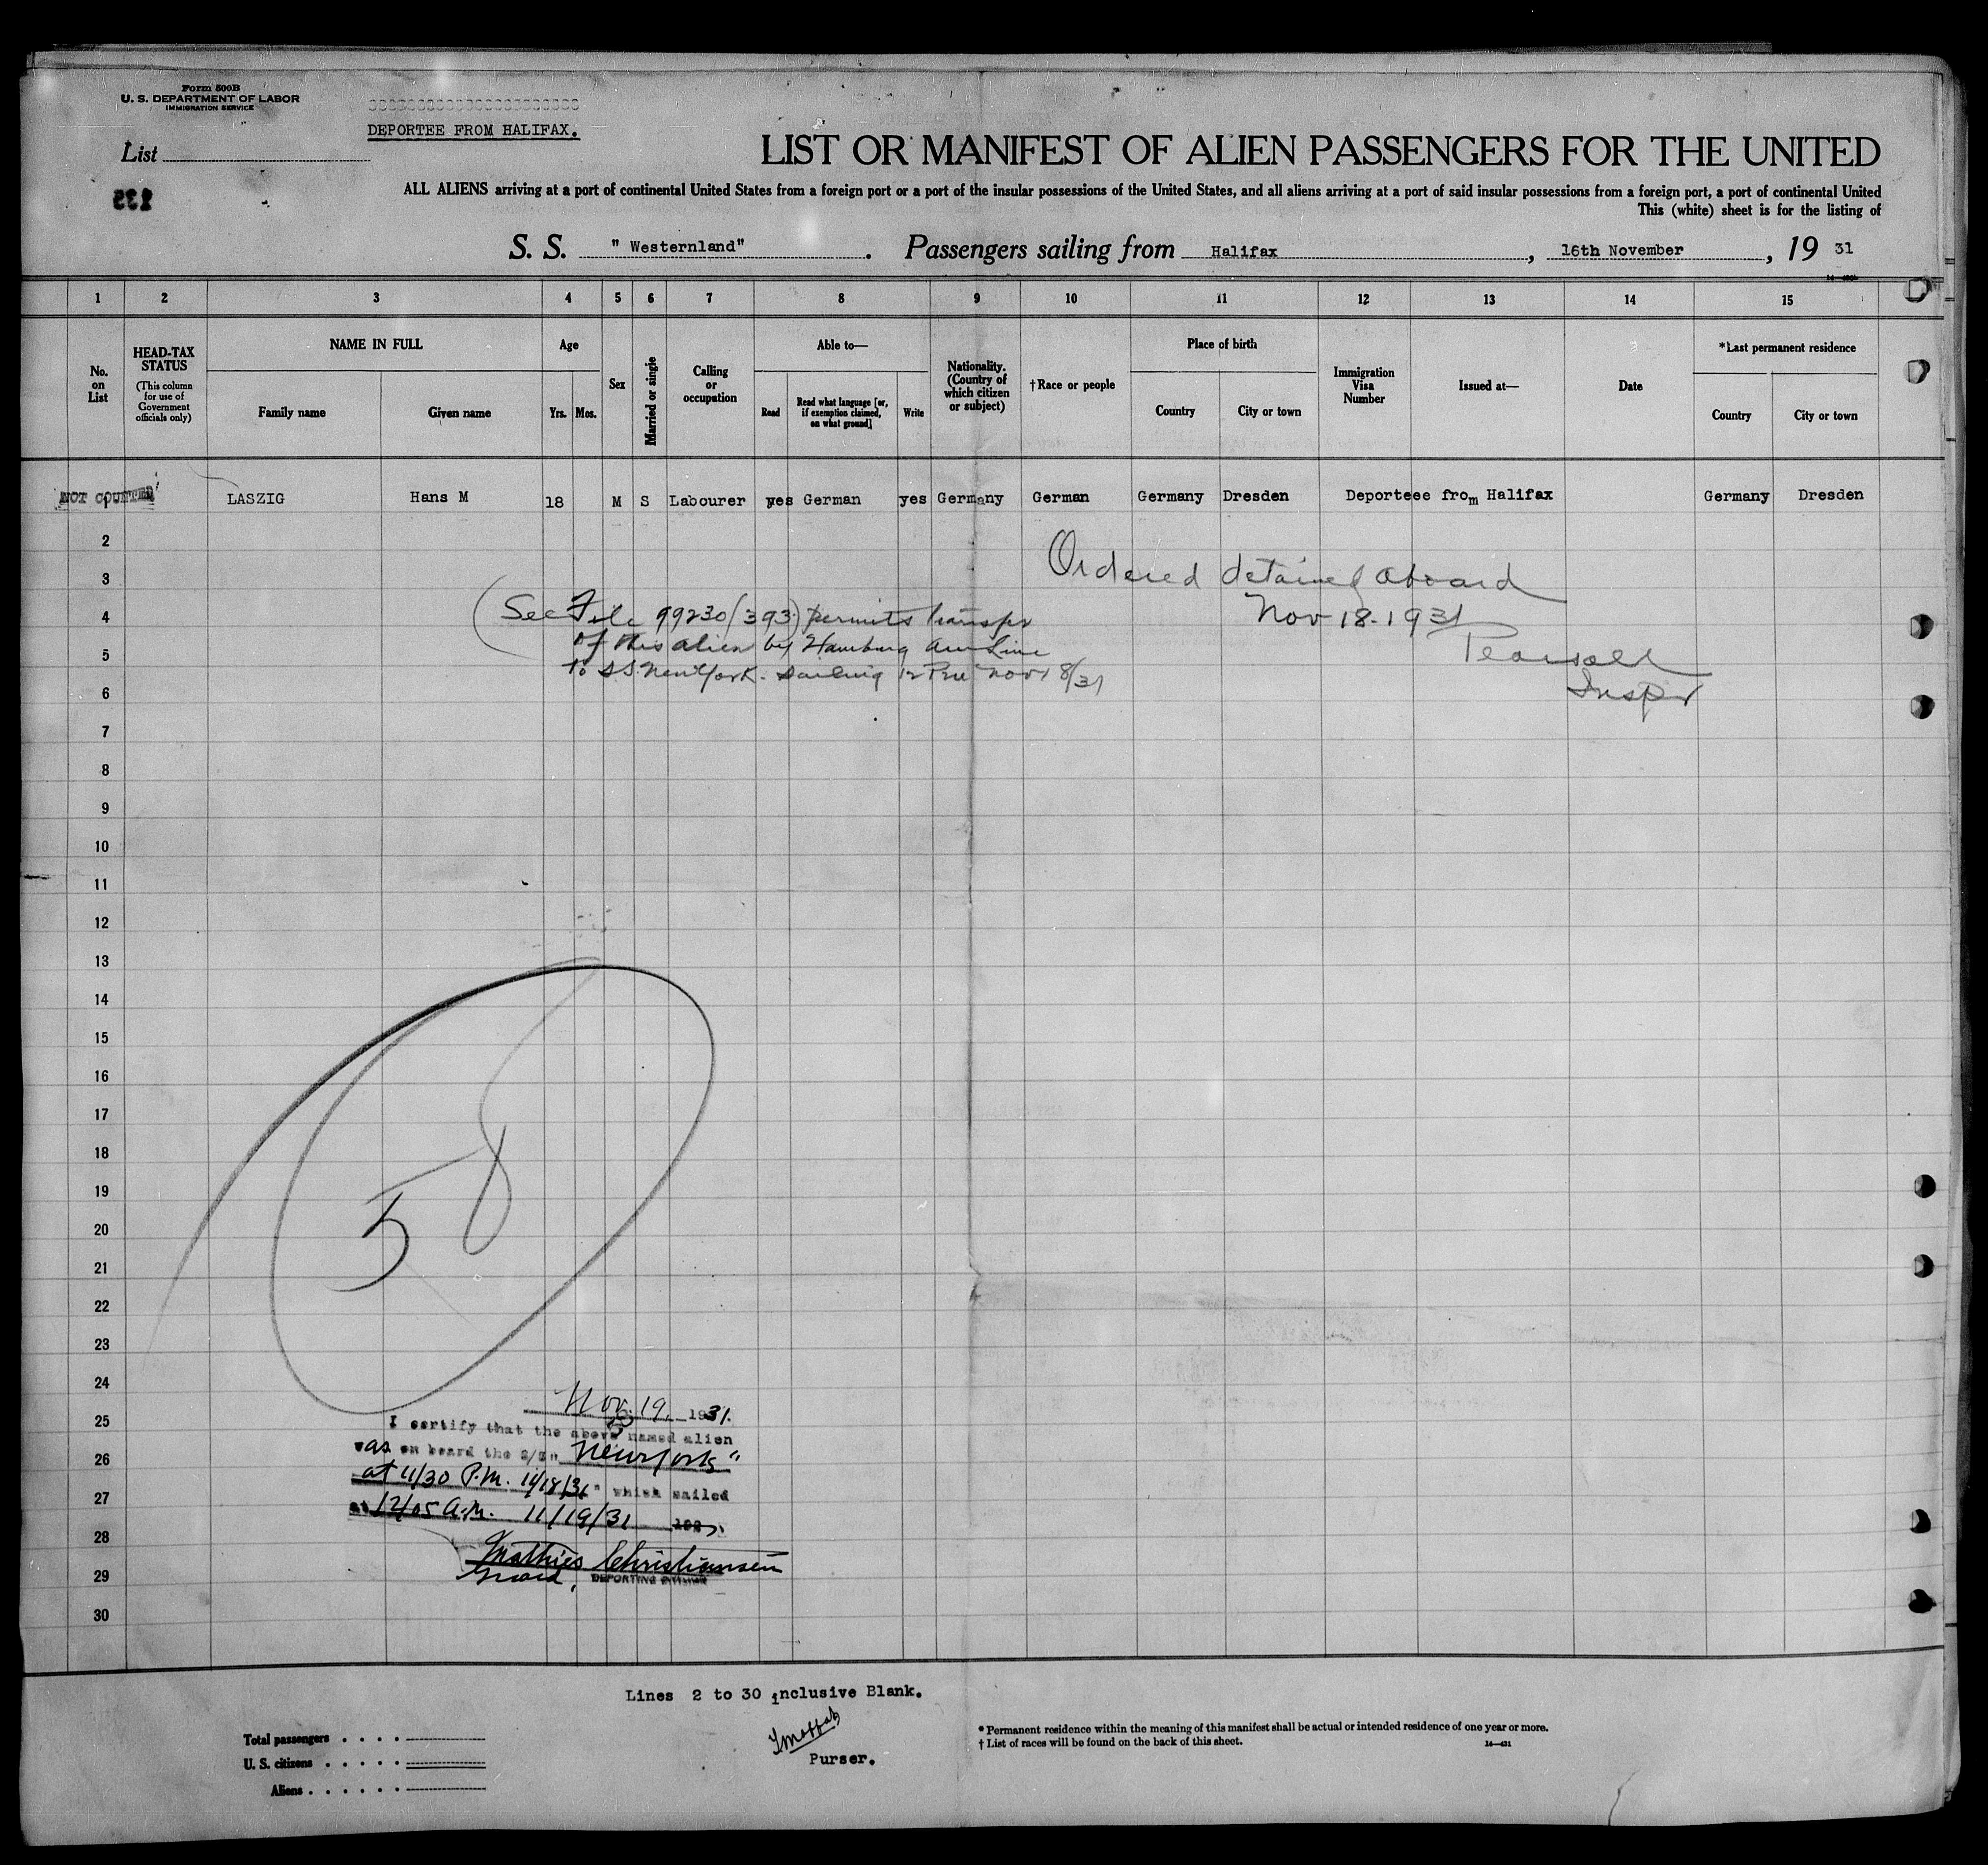 Form 500B
U. S. DEPARTMENT OF LABOR
IMMIGRATION SERVICE
DEPORTEE FROM HALIFAX.
List
LIST OR MANIFEST OF ALIEN PASSENGERS FOR THE UNITED
ALL ALIENS arriving at a port of continental United States from a foreign port or a port of the insular possessions of the United States, and all aliens arriving at a port of said insular possessions from a foreign port, a port of continental United
This (white) sheet is for the listing of
S. S. " Westernland" . Passengers sailing from Halifax , 16th November , 19 31
1 2 3 4 5 6 7 8 9 10 11 12 13 14 15
No. on List
HEAD-TAX STATUS (This column for use of Government officials only)
NAME IN FULL
Family name Given name
Age
Yrs. Mos.
Sex
Married or single
Calling or occupation
Able to—
Read Read what language [or, if exemption claimed, on what ground] Write
Nationality. (Country of which citizen or subject)
†Race or people
Place of birth
Country City or town
Immigration Visa Number
Issued at—
Date
*Last permanent residence
Country City or town
NOT COUNTED 1 LASZIG Hans M 18 M S Labourer yes German yes Germany German Germany Dresden Deporteee from Halifax Germany Dresden
2
Ordered detained aboard
3
Nov 18-1931
4 (See File 99230/393) permits transfer
of this alien by Hamburg Am Line
5
Pearsall
to S.S. New York. sailing 12 PM Nov 18/31
6
Inspr
7
8
9
10
11
12
13
14
15
16
17
18
19
58
20
21
22
23
24
Nov. 19. 1931.
25 I certify that the above named alien
was on board the S/S " New York "
26
at 11/30 P.M. 11/18/31 " which sailed
27
at 12/05 A.M. 11/19/31
28
Mathies Christiansen
29 Guard, DEPORTING OFFICER
30
Lines 2 to 30 inclusive Blank.
Purser.
Total passengers . . . .
U. S. citizens . . . . .
Aliens . . . . . .
* Permanent residence within the meaning of this manifest shall be actual or intended residence of one year or more.
† List of races will be found on the back of this sheet.
14—421